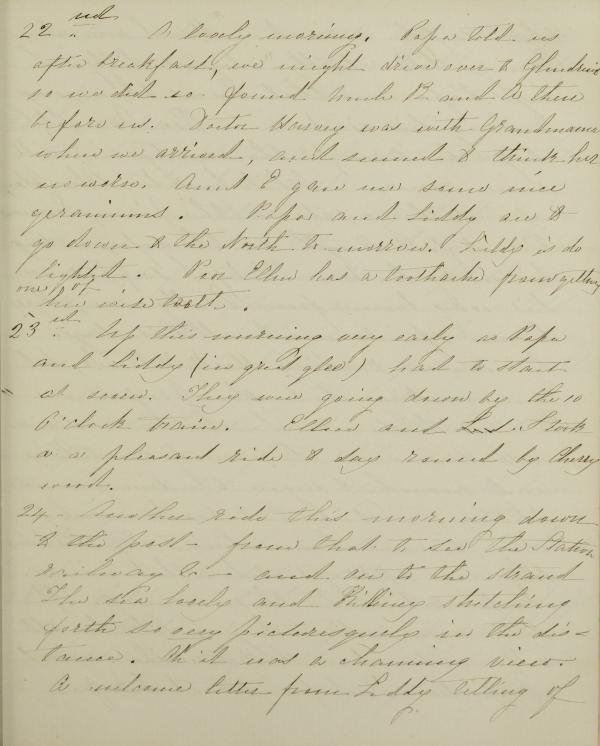 22nd. A lovely morning. Papa told us
after breakfast, we might drive over to Glendruid
so we did so found Uncle B and A there
before us. Doctor Harvey was with Grandmama
when we arrived, and seemed to think her
no worse. Aunt E gave me some nice
geraniums. Papa and Liddy are to
go down to the North to morrow. Liddy is de
lighted. Poor Ellen has a toothache from getting
one of her wise teeth.
23rd. Up this morning very early as Papa
and Liddy (in great glee) had to start
at seven. They were going down by the 10
O'clock train. Ellen and I took
a a pleasant ride to day round by Cherry
wood.
24 - Another ride this morning down
to the post - from that to see the Station
railway &c - and on to the strand
The sea lovely and Killiney stretching
forth so very picturesquely in the dis=
tance. Oh it was a charming view.
A welcome letter from Liddy telling of